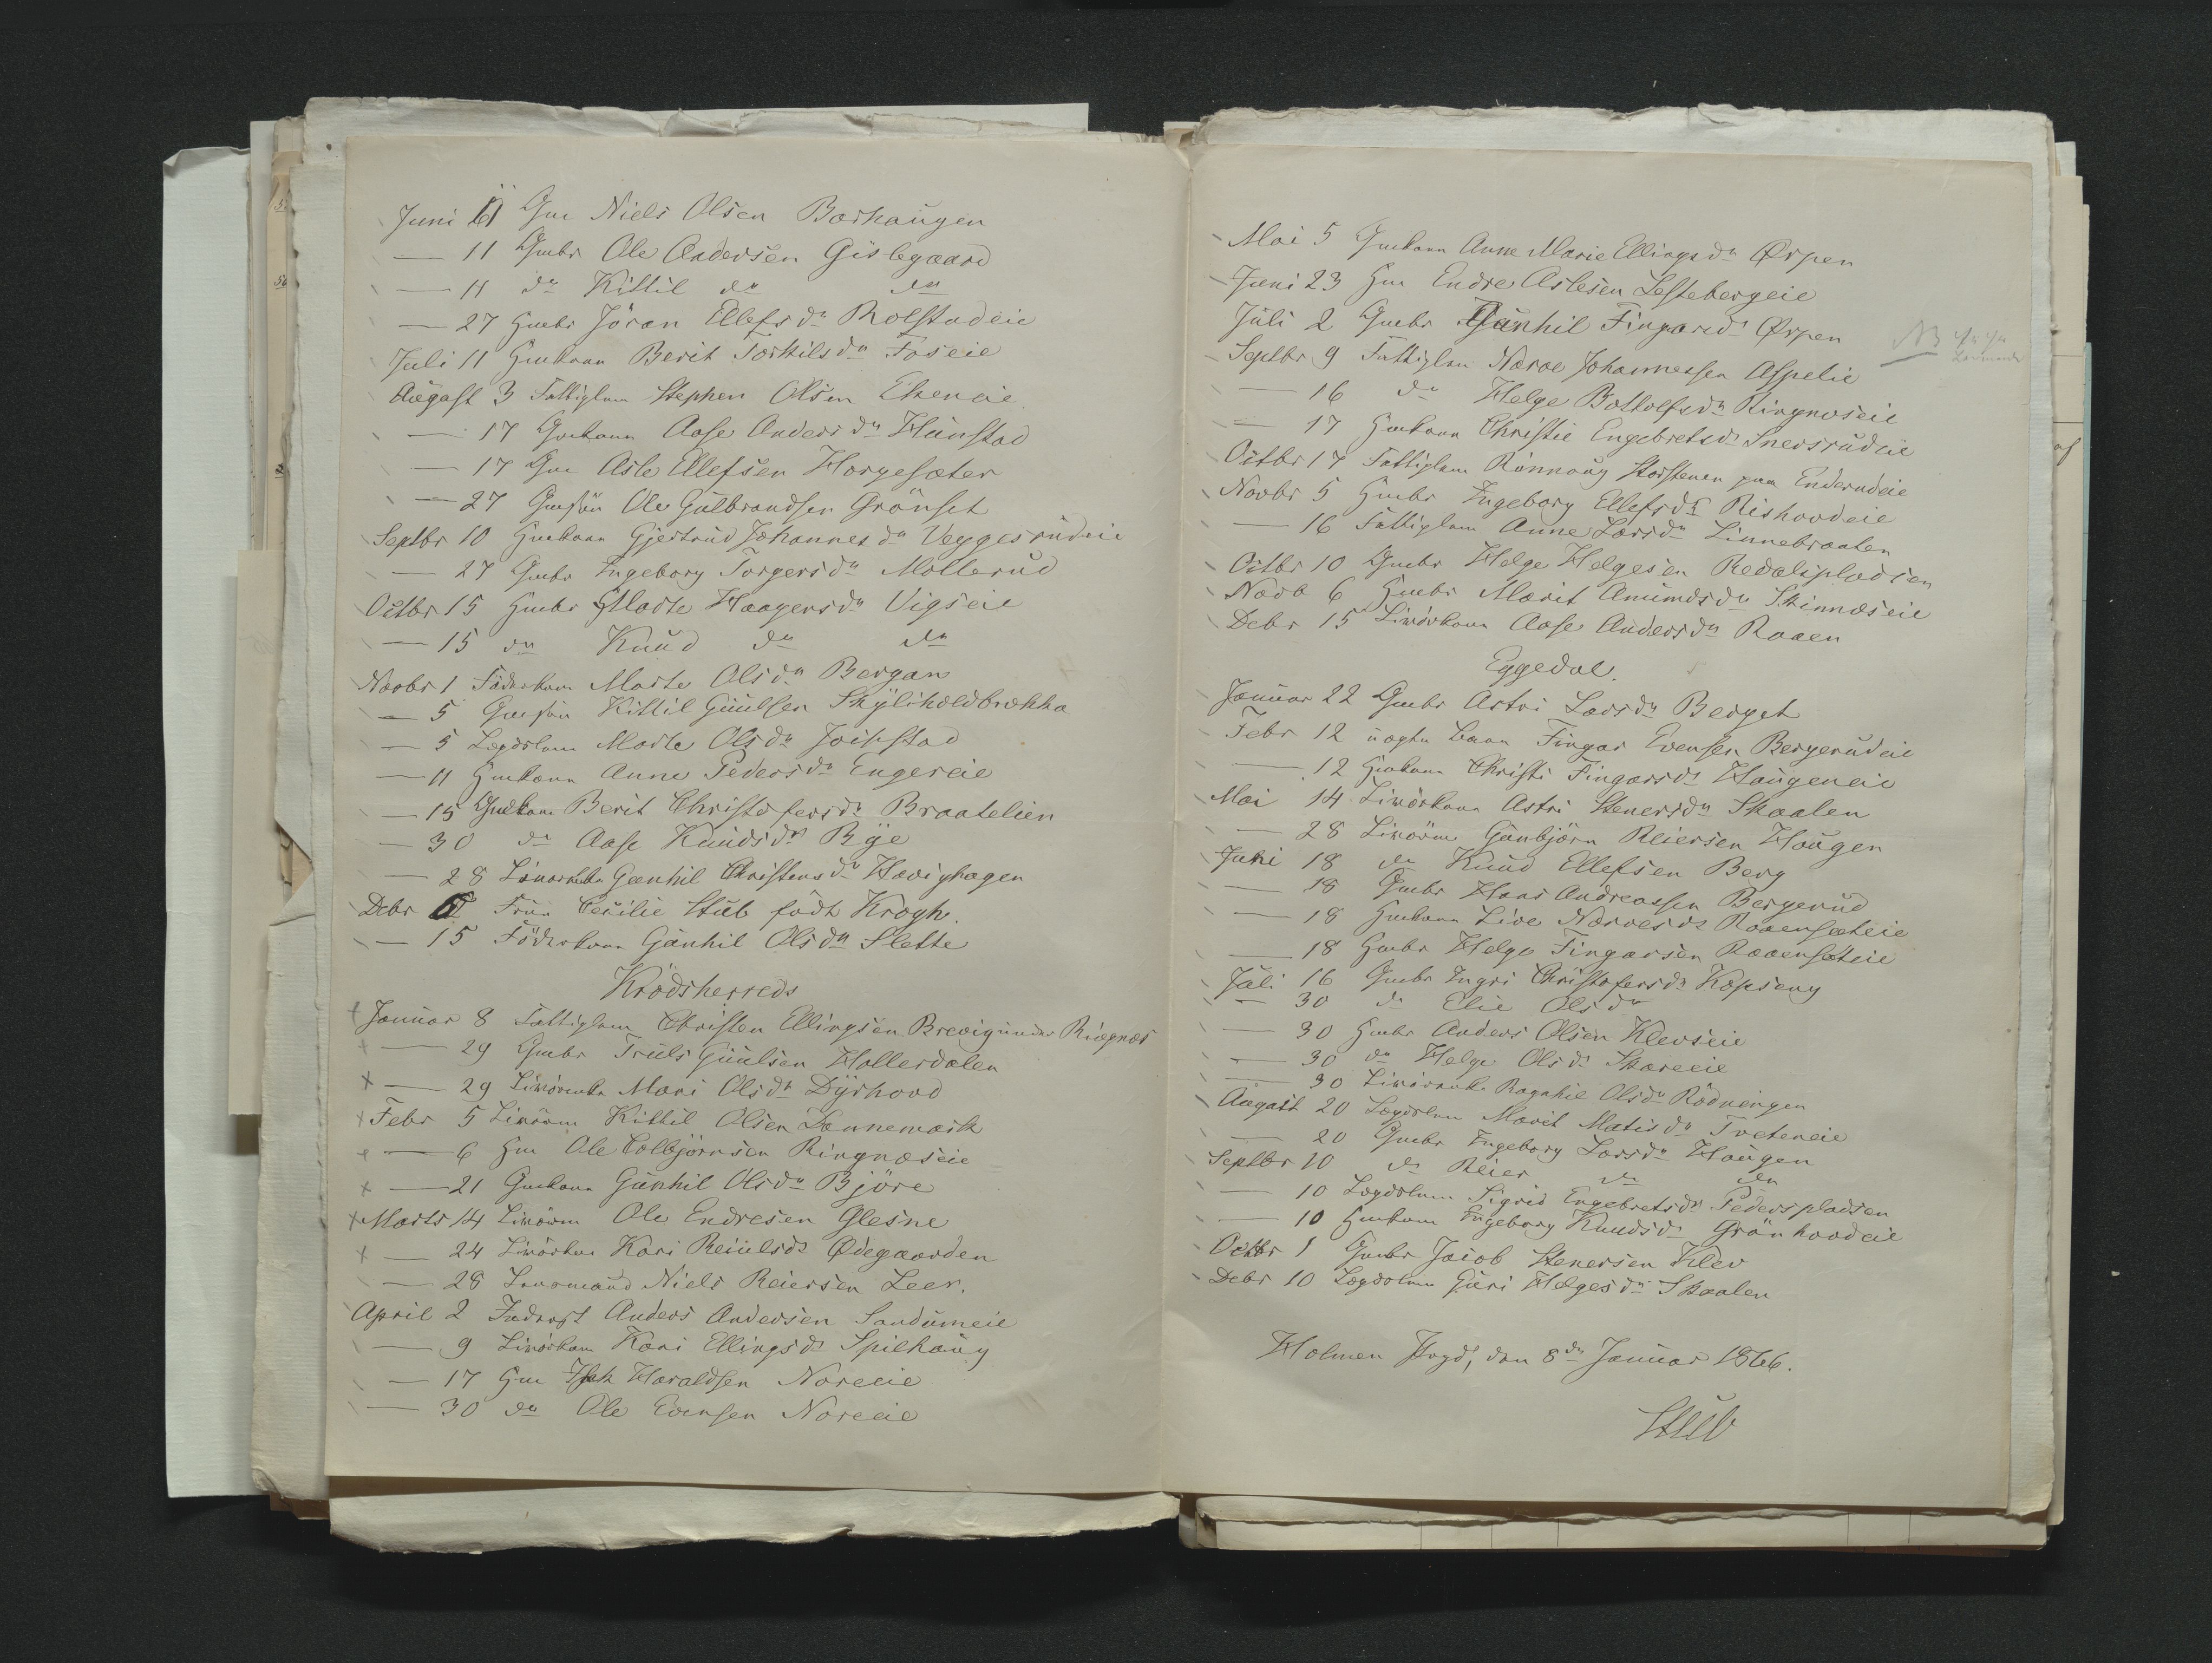 Juni 11 Gm Niels Olsen Borhaugen
— 11 Gmbr Ole Andersen Gislegaard
— 11 do Kittil do do
— 27 Hmbr Jöran Ellefsdr Rolstadeie
Juli 11 Hmkone Berit Torkilsdr Foseie
August 3 Fattiglem Stephen Olsen Ekeneie
— 17 Gmkone Aase Andersdr Hunstad
— 17 Gm Asle Ellefsen Horgesæter
— 27 Gmsön Ole Gulbrandsen Grönset
Septbr 10 Hmkone Gjertrud Johannesdr Veggesrudeie
— 27 Gmbr Ingeborg Torgersdr Mollerud
Octbr 15 Hmbr Marte Haagensdr Vigseie
— 15 do Knud do do
Novbr 1 Föderkone Marte Olsdr Bergan
— 5 Gmsön Kittil Guulsen
— 5 Lægdslem Marte Olsdr Joinstad
— 11 Hmkone Anne Pedersdr Engereie
— 15 Gmkone Berit Christofersdr Braatelien
— 30 do Aase Knudsdr Bye
— 28 Gunhil Christensdr Hovighagen
Debr Frue Cecilie Stub födt Krogh.
— 15 Föderkone Gunhil Olsdr Slette
Krödsherreds
Januar 8 Fattiglem Christen Ellingsen Brevig under Ringnes
— 29 Gmbr Truls Guulsen Hollerdalen
— 29 Mari Olsdr Dyrhovd
Febr 5 Livörm Kittil Olsen Dannemark
— 6 Hm Ole Colbjörnsen Ringnæseie
— 21 Gmkone Gunhil Olsdr Björe
Marts 14 Livörm Ole Endresen Glesne
— 24 Livörkone Kari Reiulsdr Ødegaarden
— 28 Niels Reiersen Leer.
April 2 Inderst Anders Andersen Sandumeie
— 9 Livörkone Kari Ellingsdr Spilhaug
— 17 Hm Isak Haraldsen Noreeie
— 30 do Ole Evensen Noreeie
Mai 5 Gmkone Anne Marie Ellingsdr Ørpen
Juni 23 Hm Endre Aslesen Lestebergeie
Juli 2 Gmbr Gunhil Fingarsdr Ørpen
NB
Septbr 9 Fattiglem Narve Johannessen Aspelie
— 16 do Helge Bottolfsdr Ringnæseie
— 17 Hmkone Christie Engebretsdr Snersrudeie
Octbr 17 Fattiglem Rönnaug Storstenen paa Enderudeie
Novbr 5 Hmbr Ingeborg Ellefsdr Rishovdeie
— 16 Fattiglem Anne Larsdr Linnebraaten
Octbr 10 Gmbr Helge Helgesen Redalspladsen
Novb 6 Hmbr Marit Amundsdr Skinnæseie
Debr 15 Livörkone Aase Andersdr Raaen
Eggedal.
Januar 22 Gmbr Astri Larsdr Berget
Febr 12 uægte Barn Fingar Evensen Bergerudeie
— 12 Hmkone Christi Fingarsdr Haugeneie
Mai 14 Livörkone Astri Stenersdr Skaalen
— 28 Livörm Gunbjörn Reiersen Haugen
Juni 18 do Knud Ellefsen Berg
— 18 Gmbr Hans Andreassen Bergerud
— 18 Hmkone Live Narvesdr Raaenseteie
— 18 Hmbr Helge Fingarsen Raaenseteie
Juli 16 Gmbr Ingri Christofersdr Kopseng
— 30 do Elie Olsdr
— 30 Hmbr Anders Olsen Klevseie
— 30 do Helge Olsdr Skareeie
— 30 Ragnhil Olsdr Rödningen
August 20 Lægdslem Marit Matisdr Treteneie
— 20 Gmbr Ingeborg Larsdr Haugen
Septbr 10 do Reier do do
— 10 Lægdslem Sigrid Engebretsdr Pederspladsen
— 10 Hmkone Ingeborg Knudsdr Grönhovdeie
Octbr 1 Gmbr Jacob Stenersen Klev
Debr 10 Lægdslem Guri Helgesdr Skaalen
Holmen Prgd, den 8de Januar 1866.
Stub